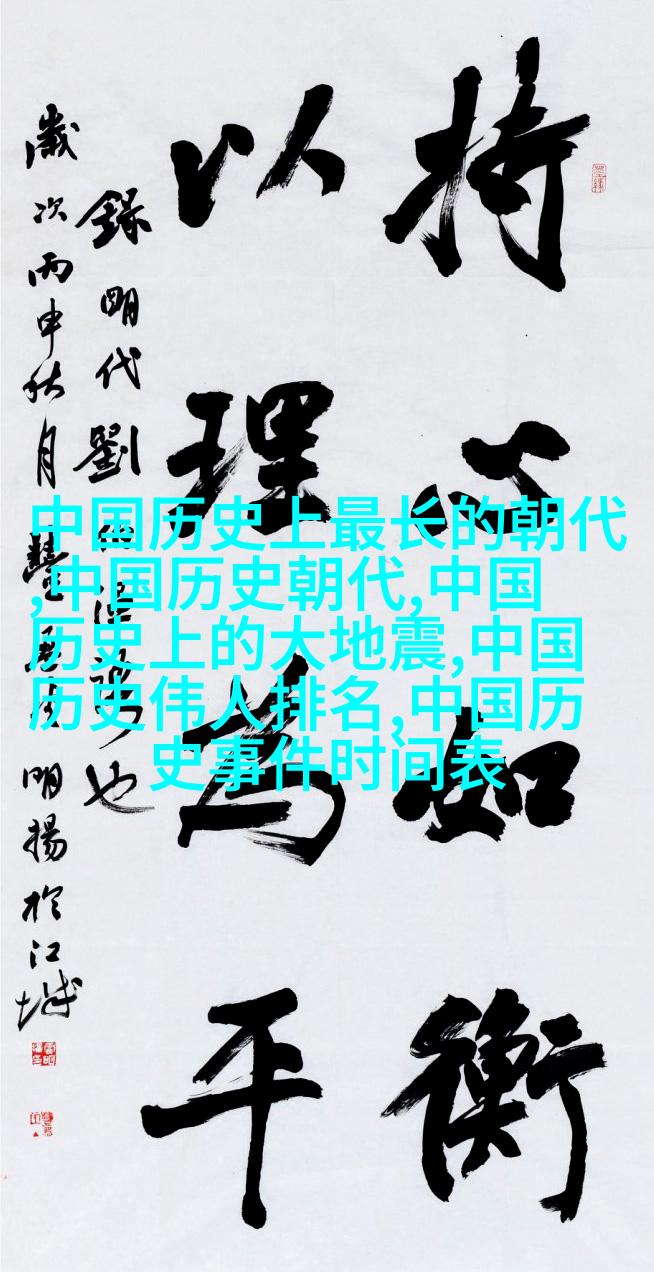 持心如衡
以理為平
錄明代劉伯溫語也
歲次丙申秋月
明揚於江城
中国历史上最长的朝代
,中国历史朝代,中国
历史上的大地震,中国
历史伟人排名,中国历
史事件时间表